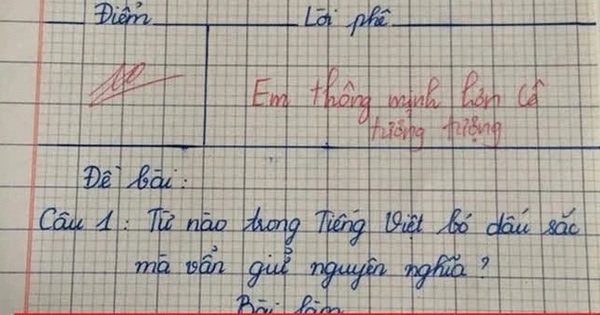 Điểm Lời phê
10 Em thông minh hơn cô
tưởng tượng
Đề bài :
Câu 1 : Từ nào trong Tiếng Việt bỏ dấu sắc
mà vẫn giữ nguyên nghĩa ?
Bài làm